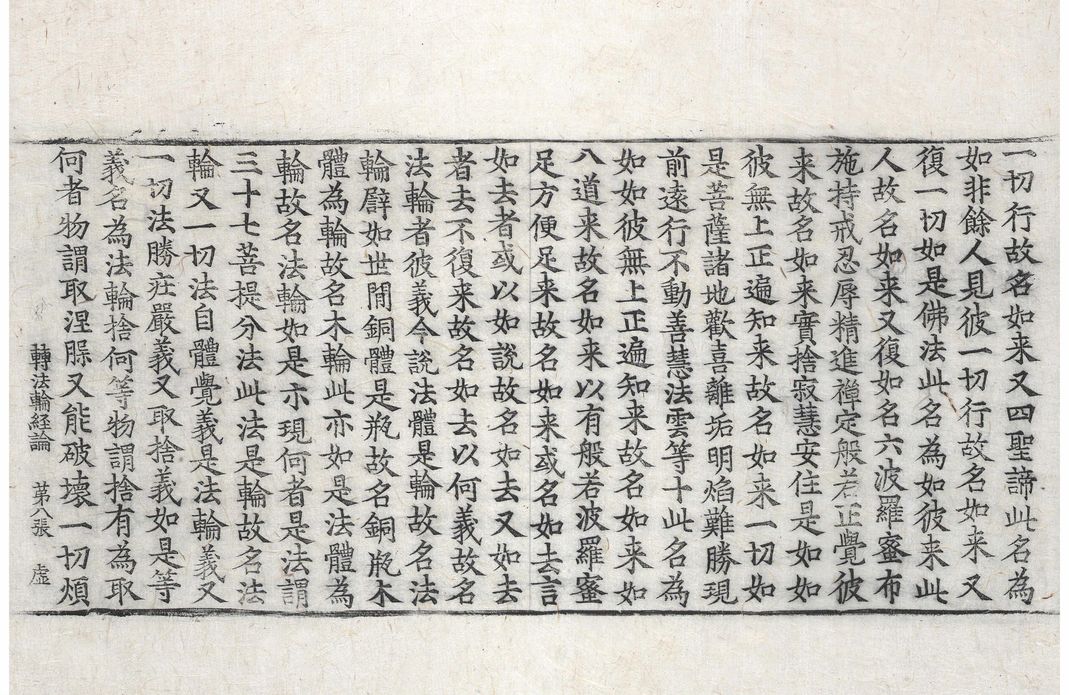 一切行故名如来又四聖諦此名為
如非餘人見彼一切行故名如来又
復一切如是佛法此名為如彼来此
人故名如来又復如名六波羅蜜布
施持戒忍辱精進禅定般若正覺彼
来故名如来實捨寂慧安住是如如
彼無上正遍知来故名如来一切如
是菩薩諸地歡喜離垢明焰難勝現
前遠行不動善慧法雲等十此名為
如如彼無上正遍知来故名如来如
八道来故名如来以有般若波羅蜜
足方便足来故名如来或名如去言
如去者或以如說故名如去又如去
者去不復来故名如去以何義故名
法輪者彼義今說法體是輪故名法
輪譬如世間銅體是瓶故名銅瓶木
體為輪故名木輪此亦如是法體為
輪故名法輪如是亦現何者是法謂
三十七菩提分法此法是輪故名法
輪又一切法自體覺義是法輪義又
一切法勝莊嚴義又取捨義如是等
義名為法輪捨何等物謂捨有為取
何者物謂取涅槃又能破壞一切煩
轉法輪経論 第八張 虛